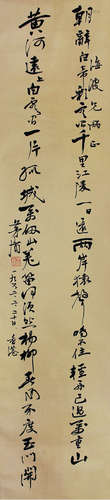 海波
朝辞白帝彩雲間千里江陵一日還兩岸猿聲啼不住輕舟已過萬重山
黄河遠上白雲間一片孤城萬仞山羌笛何須怨楊柳春風不度玉門關